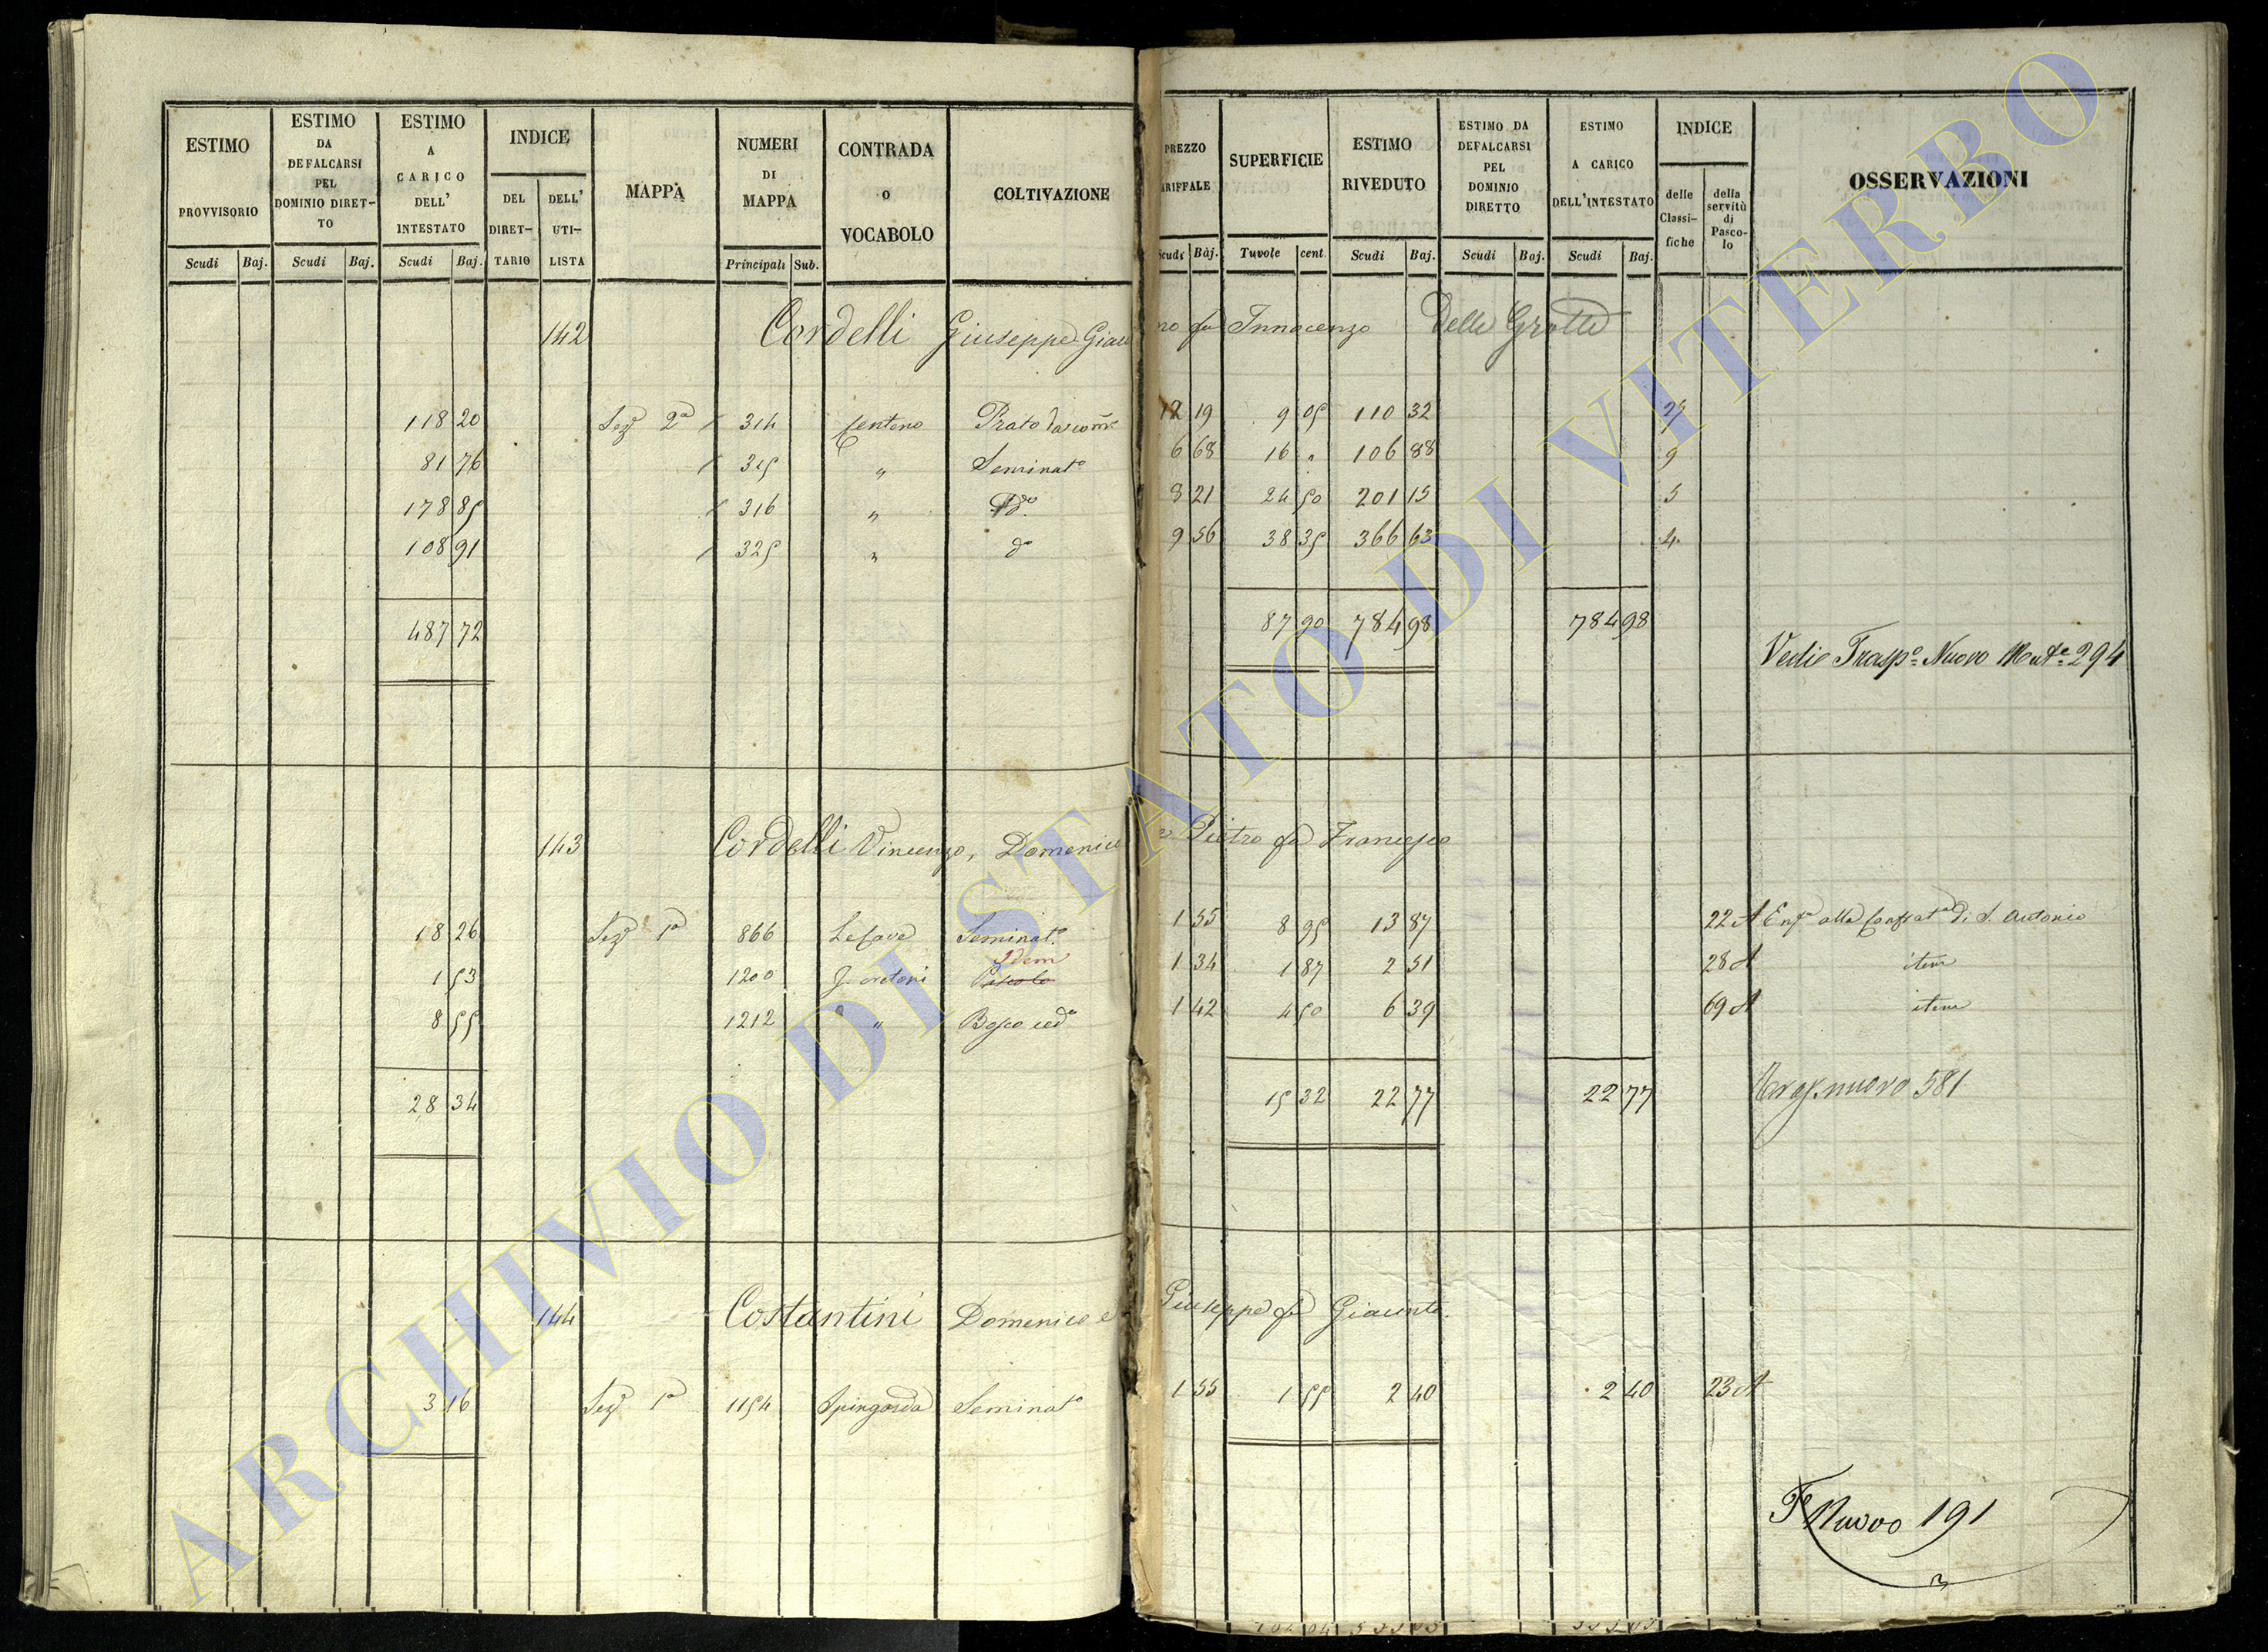 ESTIMO PROVVISORIO Scudi Baj.
ESTIMO DA DEFALCARSI PEL DOMINIO DIRETTO Scudi Baj.
ESTIMO A CARICO DELL' INTESTATO Scudi Baj.
INDICE DEL DIRETTARIO DELL' UTILISTA
MAPPA
NUMERI DI MAPPA Principali Sub.
CONTRADA O VOCABOLO
COLTIVAZIONE
PREZZO TARIFFALE Scudi Baj.
SUPERFICIE Tavole cent.
ESTIMO RIVEDUTO Scudi Baj.
ESTIMO DA DEFALCARSI PEL DOMINIO DIRETTO Scudi Baj.
ESTIMO A CARICO DELL'INTESTATO Scudi Baj.
INDICE delle Classifiche della servitù di Pascolo
OSSERVAZIONI
142 Cordelli Giuseppe Giaci no fu Innocenzo Delle Grotte
118 20 Sez. 2a 314 Centeno Prato 12 19 9 05 110 32 27
81 76 315 " Seminato 6 68 16 " 106 88 9
178 85 316 " do. 8 21 24 50 201 15 5
108 91 325 " do 9 56 38 35 366 63 4
487 72 87 90 784 98 784 98
Vedi Traspo. Nuovo 294
143 Cordelli Vincenzo, Domenico e Pietro fu Francesco
18 26 Sez. 1a 866 Le Cave Seminato. 1 55 8 95 13 87 22 A Enfa alla Confrata di S. Antonio
Idem
1 53 1200 Pascolo 1 34 1 87 2 51 28 A item
8 55 1212 " Bosco cedo 1 42 4 50 6 39 69 A item
28 34 15 32 22 77 22 77 Trasp. nuovo 581
144 Costantini Domenico e Giuseppe fu Giacinto.
3 16 Sez. 1a 1154 Spingarda Seminato 1 55 1 55 2 40 2 40 23 A
To Nuovo 191
ARCHIVIO DI STATO DI VITERBO